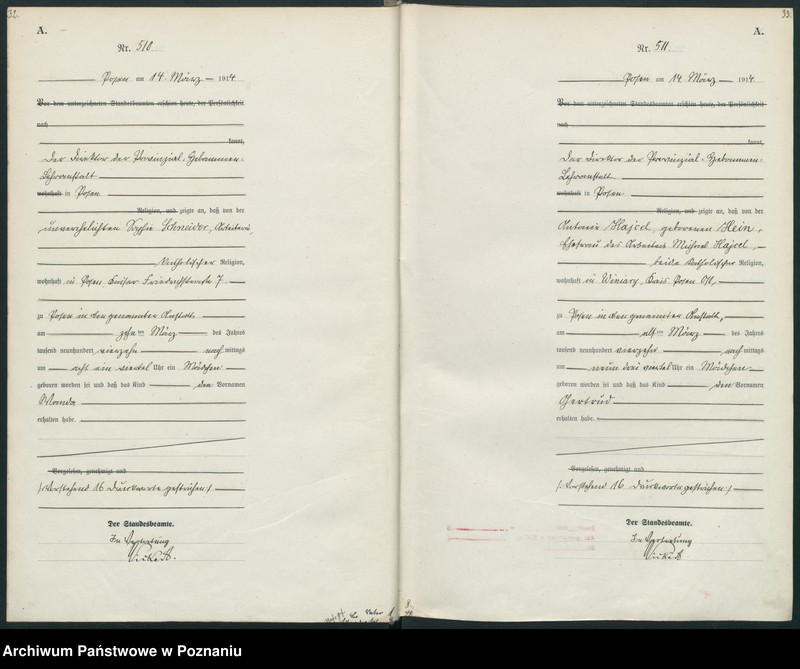 32.
A.
Nr. 510
Posen am 14. März 1914
Vor dem unterzeichneten Standesbeamten erschien heute, der Persönlichkeit
nach
kannt,
Der Direktor der Provinzial-Hebammen-
Lehranstalt
wohnhaft in Posen
Religion, und zeigte an, daß von der
unverehelichten Sophie Schneider, Arbeiterin,
Katholischer Religion,
wohnhaft in Posen Kaiser Friedrichstraße 7
zu Posen in der genannten Anstalt
am zehn ten März des Jahres
tausend neunhundert vierzehn nach mittags
um acht ein viertel Uhr ein Mädchen
geboren worden sei und daß das Kind den Vornamen
Wanda
erhalten habe.
Vorgelesen, genehmigt und
/: Vorstehend 16 Druckworte gestrichen :/
Der Standesbeamte.
In Vertretung
33.
A.
Nr. 511.
Posen am 14. März 1914
Vor dem unterzeichneten Standesbeamten erschien heute, der Persönlichkeit
nach
kannt,
Der Direktor der Provinzial-Hebammen-
Lehranstalt
wohnhaft in Posen
Religion, und zeigte an, daß von der
Antonie Hajcel, geborenen Hein,
Ehefrau des Arbeiters Michael Hajcel,
beide Katholischer Religion,
wohnhaft in Winiary, Kreis Posen
zu Posen in der genannten Anstalt,
am elf ten März des Jahres
tausend neunhundert vierzehn nach mittags
um neun drei viertel Uhr ein Mädchen
geboren worden sei und daß das Kind den Vornamen
Gertrud
erhalten habe.
Vorgelesen, genehmigt und
/: Vorstehend 16 Druckworte gestrichen :/
Der Standesbeamte.
In Vertretung
Archiwum Państwowe w Poznaniu